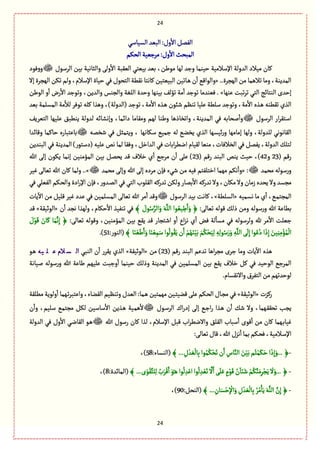 24
الفصل الأول: البعد السياسي
المبحث الأول: مرجعية الحكم
كان ميلاد الدولة الإسلامية حينما وجد لها موطن، بعد بيعتي العقبة الأولى والثانية بين الرسول ﷺ ووفود
المدينة، وما تلاهما من الهجرة.. «والواقع أن هاتين البيعتين كانتا نقطة التحول في حياة الإسلام، ولم تكن الهجرة إلا
إحدى النتائج التي ترتبت عنها». فعندما توجد أمة تؤلف بينها وحدة اللغة والجنس والدين، وتوجد الأرض أو الوطن
الذي تقطنه هذه الأمة، وتوجد سلطة عليا تنظم شئون هذه الأمة، توجد (الدولة)، وهذا كله توفر للأمة المسلمة بعد
استقرار الرسول ﷺ وأصحابه في المدينة، واتخاذها وطنا لهم ومقاما دائما، وإنشائه لدولة ينطبق عليها التعريف
القانوني للدولة، ولها إمامها ورئيسها الذي يخضع له جميع سكانها، ويتمثل في شخصه ﷺ باعتباره حاكما وقائدا
لتلك الدولة، يفصل في الخلافات، منعا لقيام اضطرابات في الداخل، وفقا لما نص عليه (دستور) المدينة في البندين
رقم (23 و42)، حيث ينص البند رقم (23) على أن مرجع أي خلاف قد يحصل بين المؤمنين إنما يكون إلى الله
ورسوله محمد ﷺ: «وأنكم مهما اختلفتم فيه من شيء فإن مرده إلى الله وإلى محمد ﷺ». ولما كان الله تعالى غير
مجسد ولا يحده زمان ولا مكان، ولا تدركه الأبصار ولكن تدركه القلوب التي في الصدور، فإن الإرادة والحكم الفعلي في
المجتمع، أي ما نسميه «السلطة»، كانت بيد الرسول ﷺ وقد أمر الله تعالى المسلمين في عدد غير قليل من الآيات
بطاعة الله ورسوله ومن ذلك قوله تعالى: ﴿ وَأَطِيعُوا اللَّهَ وَالرَّسُولَ ﴾ في تنفيذ الأحكام، ولهذا نجد أن «الوثيقة» قد
جعلت الأمر لله ولرسوله في مسألة فض أي نزاع أو اشتجار قد يقع بين المؤمنين، وقوله تعالى: ﴿ إِنَّمَا كَانَ قَوْلَ
الْمُؤْمِنِينَ إِذَا دُعُوا إِلَى اللَّهِ وَرَسُولِهِ لِيَحْكُمَ بَيْنَهُمْ أَن يَقُولُوا سَمِعْنَا وَأَطَعْنَا ﴾ (النور:51).
هذه الآيات وما جرى مجراها تدعم البند رقم (23) من «الوثيقة» الذي يقرر أن النبي عليه السلام هو
المرجع الوحيد في كل خلاف يقع بين المسلمين في المدينة وذلك حينما أوجبت عليهم طاعة الله ورسوله صيانة
لوحدتهم من التفرق والانقسام.
ركزت «الوثيقة» في مجال الحكم على قضيتين مهمتين هما: العدل وتنظيم القضاء، واعتبرتهما أولوية مطلقة
يجب تحققهما، ولا شك أن هذا راجع إلى إدراك الرسول ﷺ لأهمية هذين الأساسين لكل مجتمع سليم، وأن
غيابهما كان من أقوى أسباب القلق والاضطراب قبل الإسلام، لذا كان رسول الله ﷺ هو القاضي الأول في الدولة
الإسلامية، فحكم بما أنزل الله، قال تعالى:
-﴿ ...وَإِذَا حَكَمْتُم بَيْنَ النَّاسِ أَن تَحْكُمُوا بِالْعَدْلِ... ﴾ (النساء:58)،
-﴿ ...وَلَا يَجْرِمَنَّكُمْ شَنَآنُ قَوْمٍ عَلَى أَلَّا تَعْدِلُوا اعْدِلُوا هُوَ أَقْرَبُ لِلتَّقْوَى... ﴾ (المائدة:8)،
-﴿ إِنَّ اللَّهَ يَأْمُرُ بِالْعَدْلِ وَالْإِحْسَانِ... ﴾ (النحل:90)،
24